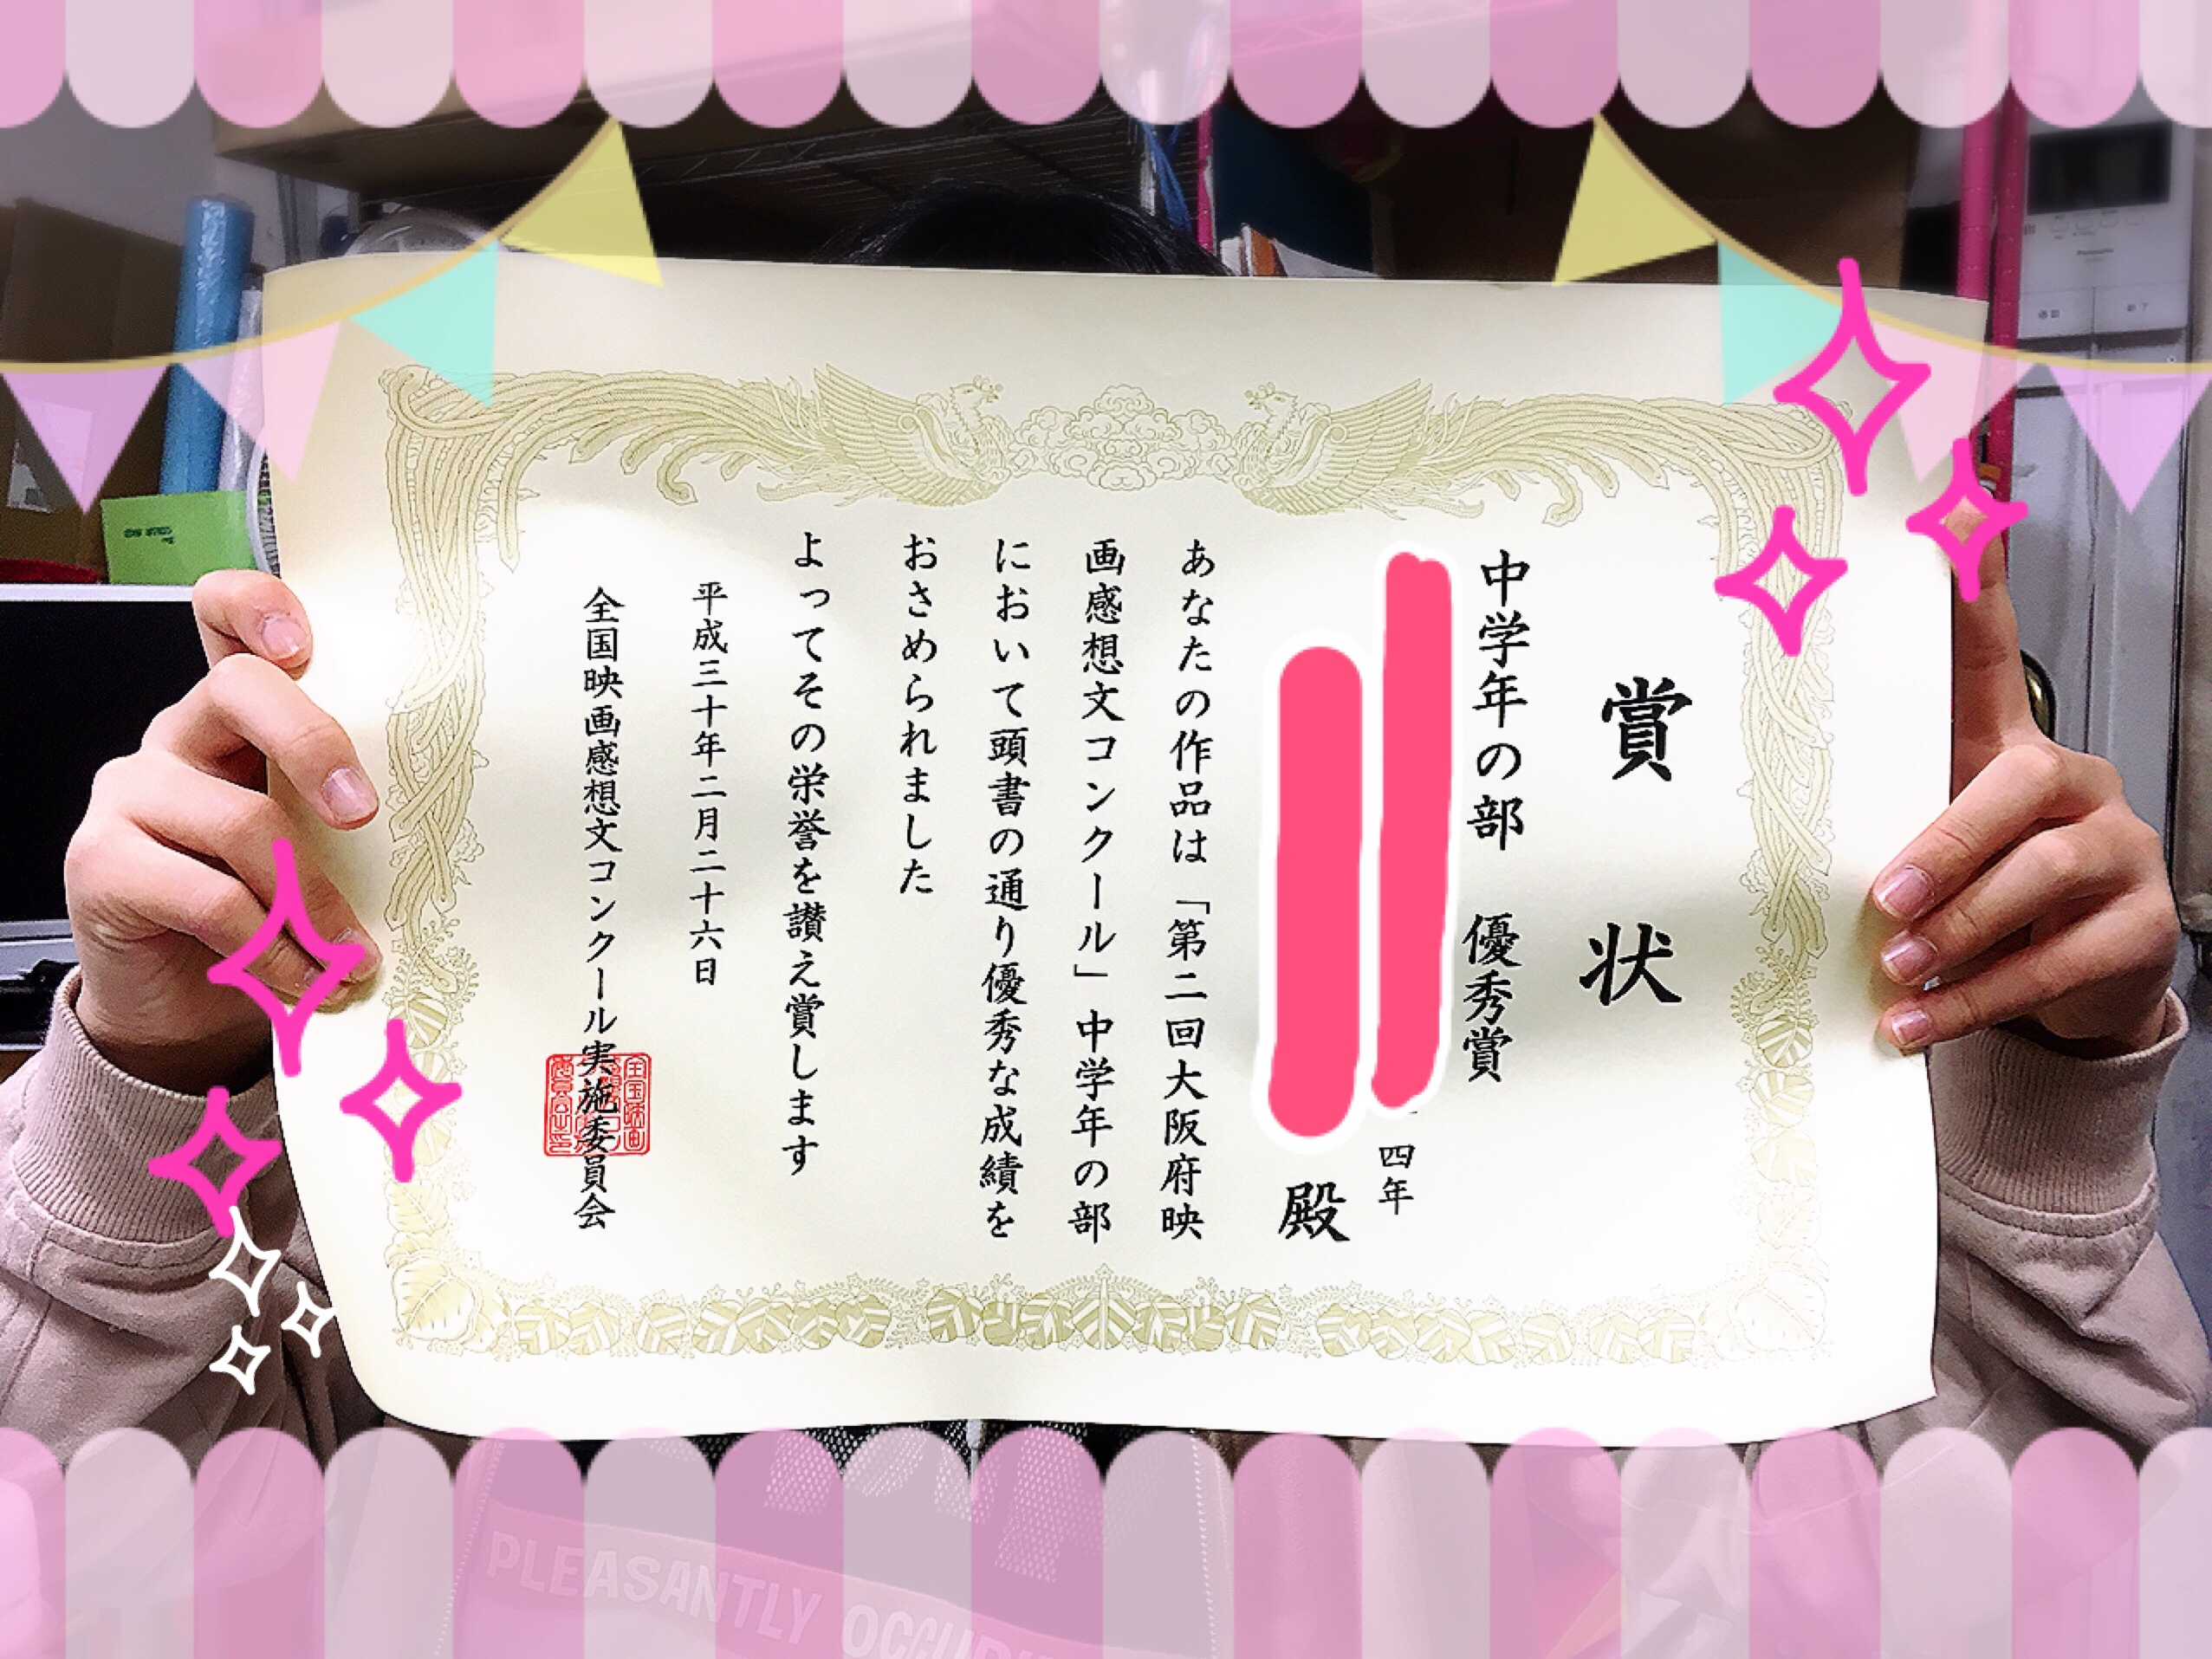 賞状
中学年の部　優秀賞
四年
殿
あなたの作品は「第二回大阪府映
画感想文コンクール」中学年の部
において頭書の通り優秀な成績を
おさめられました
よってその栄誉を讃え賞します
平成三十年二月二十六日
全国映画感想文コンクール実施委員会
PLEASANTLY